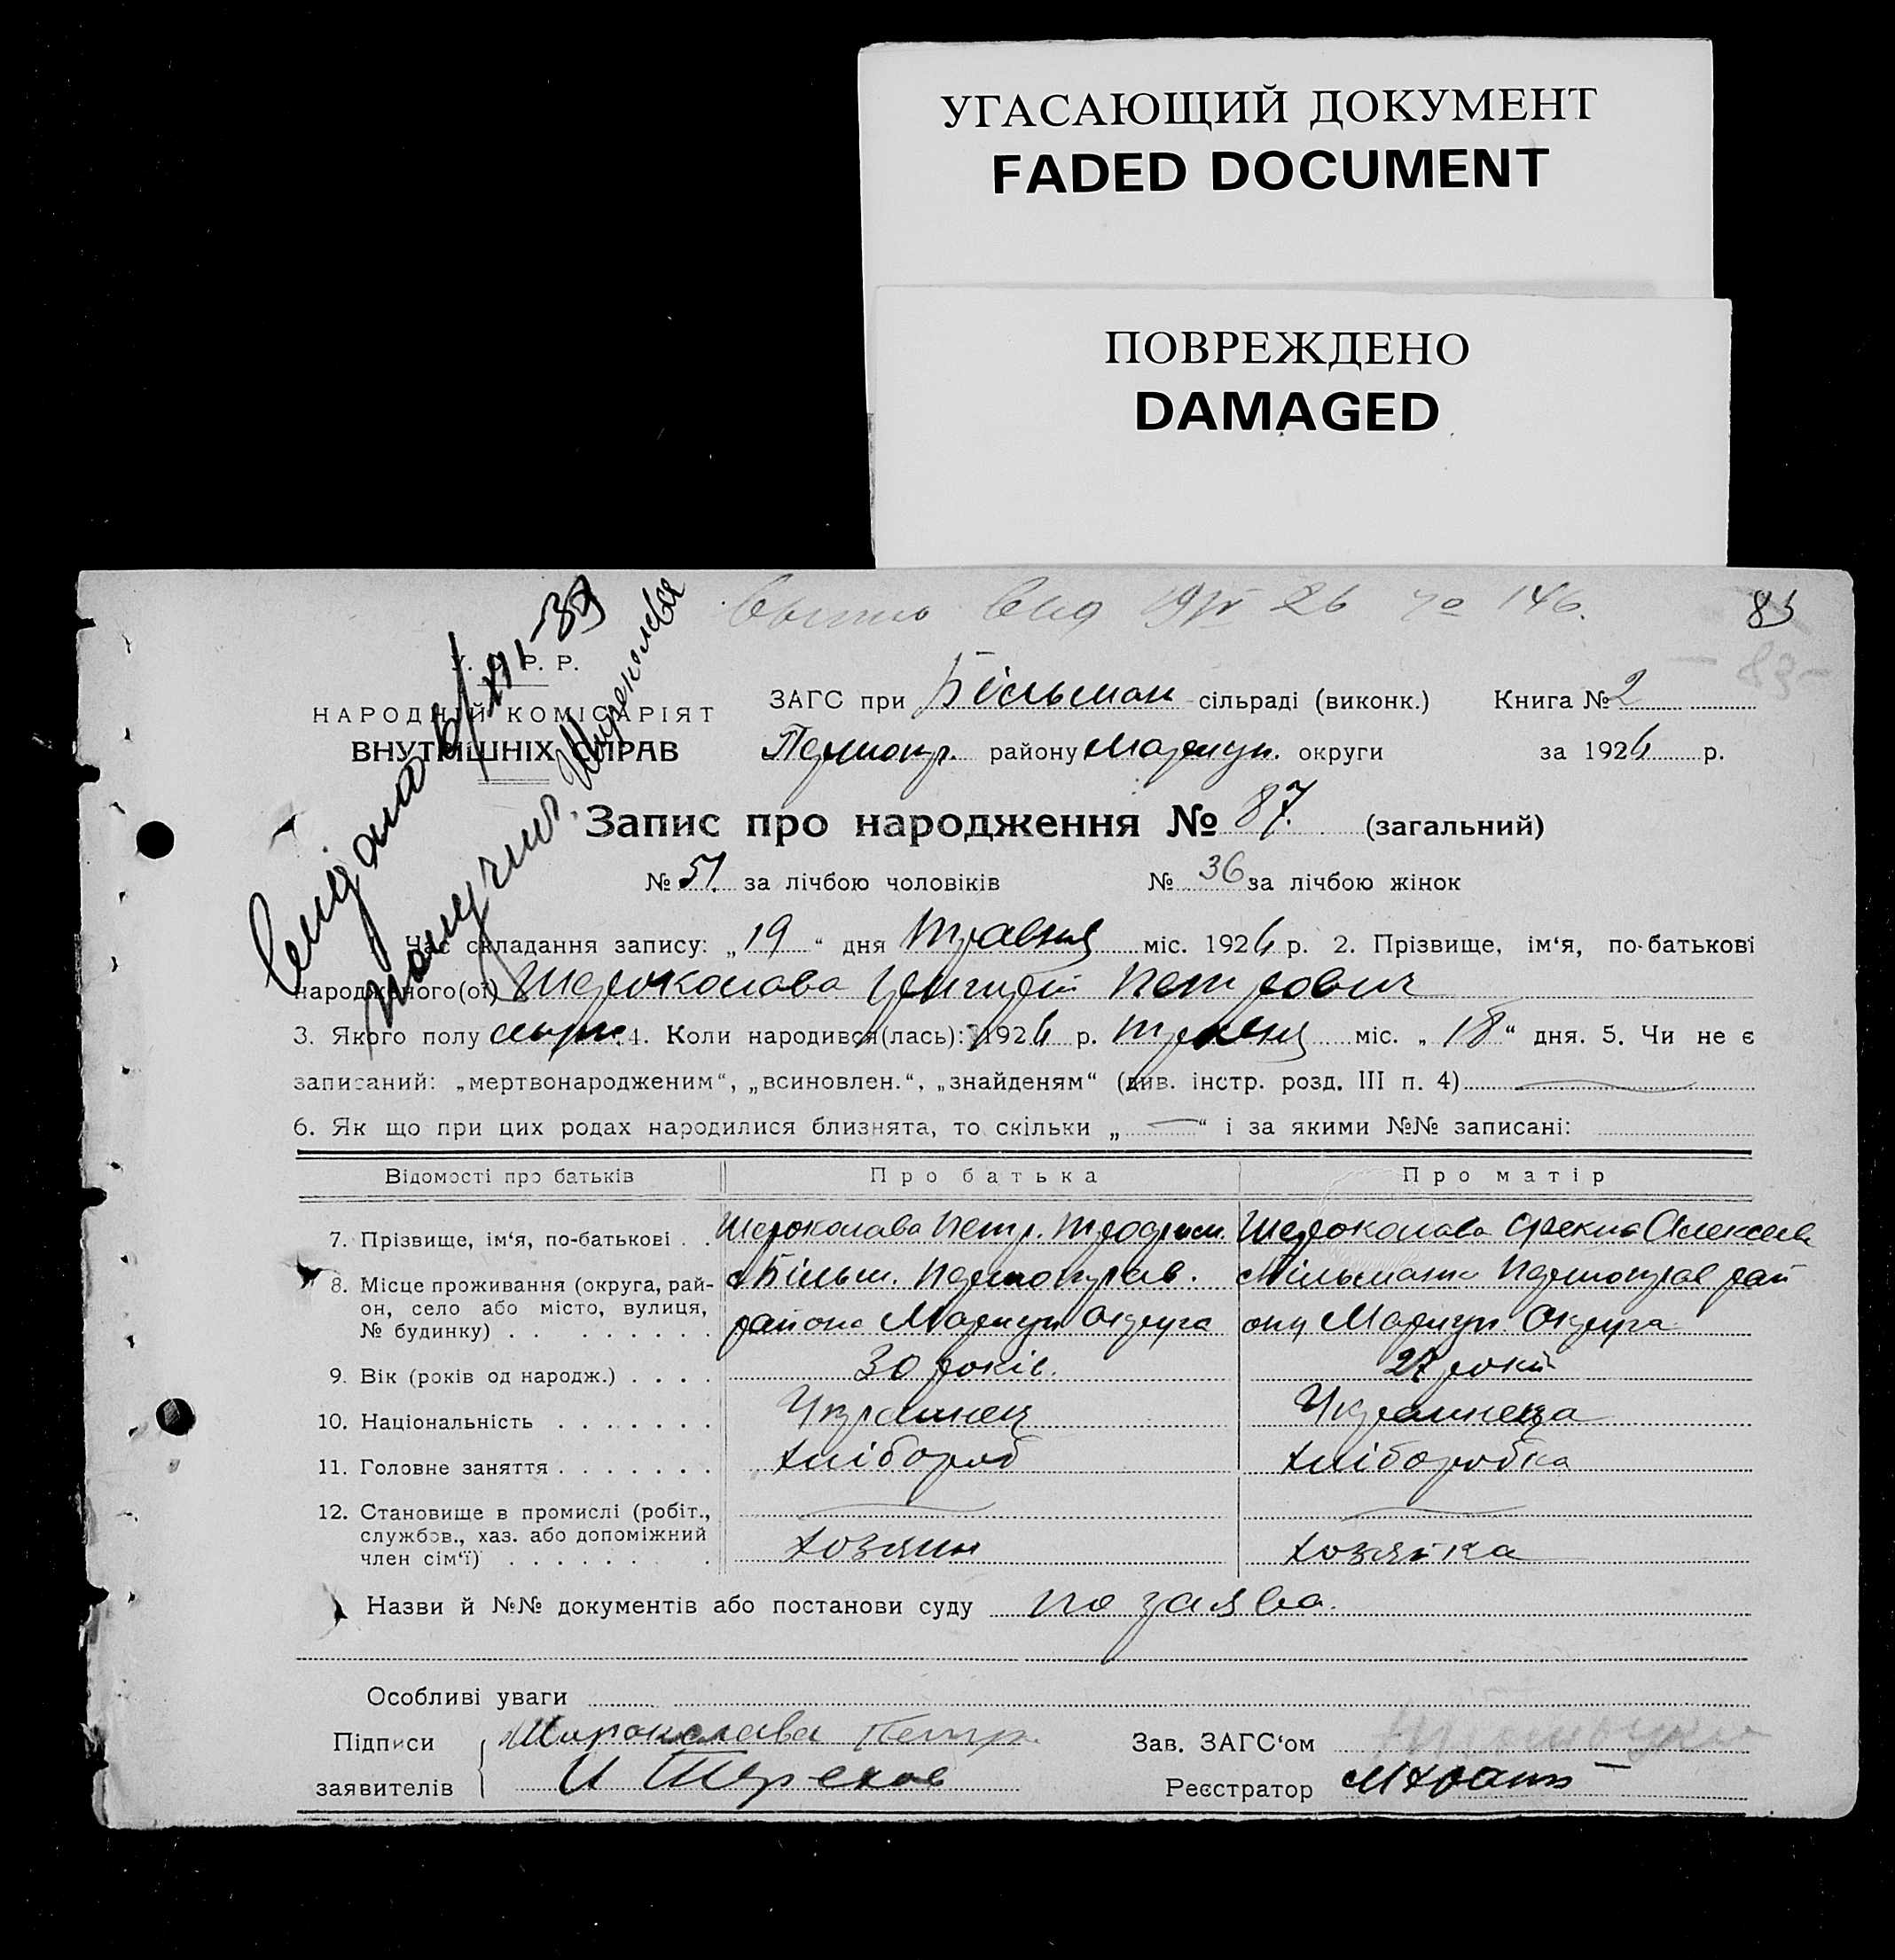 УГАСАЮЩИЙ ДОКУМЕНТ
FADED DOCUMENT
ПОВРЕЖДЕНО
DAMAGED
26 146.
83
83
У. С. Р. Р.
НАРОДНІЙ КОМІСАРІЯТ
ВНУТРІШНІХ СПРАВ
ЗАГС при Більман сільраді (виконк.) Книга № 2
району Мариуп. округи за 1926 р.
Запис про народження № 87. (загальний)
№ 51 за лічбою чоловіків № 36 за лічбою жінок
Час складання запису: „19“ дня травня міс. 1926 р. 2. Прізвище, ім‘я, по-батькові
народженого(ої) Широколава Петрович
3. Якого полу 4. Коли народився(лась): 1926 р. травня міс. „18“ дня. 5. Чи не є
записаний: „мертвонародженим“, „всиновлен.“, „знайденям“ (див. інстр. розд. III п. 4)
6. Як що при цих родах народилися близнята, то скільки „ “ і за якими №№ записані:
Відомості про батьків Про батька Про матір
7. Прізвище, ім‘я, по-батькові Широколава Петр. Трофим. Широколава Алексеев
8. Місце проживання (округа, рай-
он, село або місто, вулиця,
№ будинку)
с Більм. района Мариуп Округа
рай ону Мариуп. Округа
9. Вік (років од народж.) 30 років. 27 років
10. Національність Украинец Украинеца
11. Головне заняття хлібороб хліборобка
12. Становище в промислі (робіт.,
службов., хаз. або допоміжний
член сім‘ї)
хозяин хозяйка
Назви й №№ документів або постанови суду по заява.
Особливі уваги
Підписи заявителів Широколава Петр.
И Терехов
Зав. ЗАГС‘ом
Реєстратор